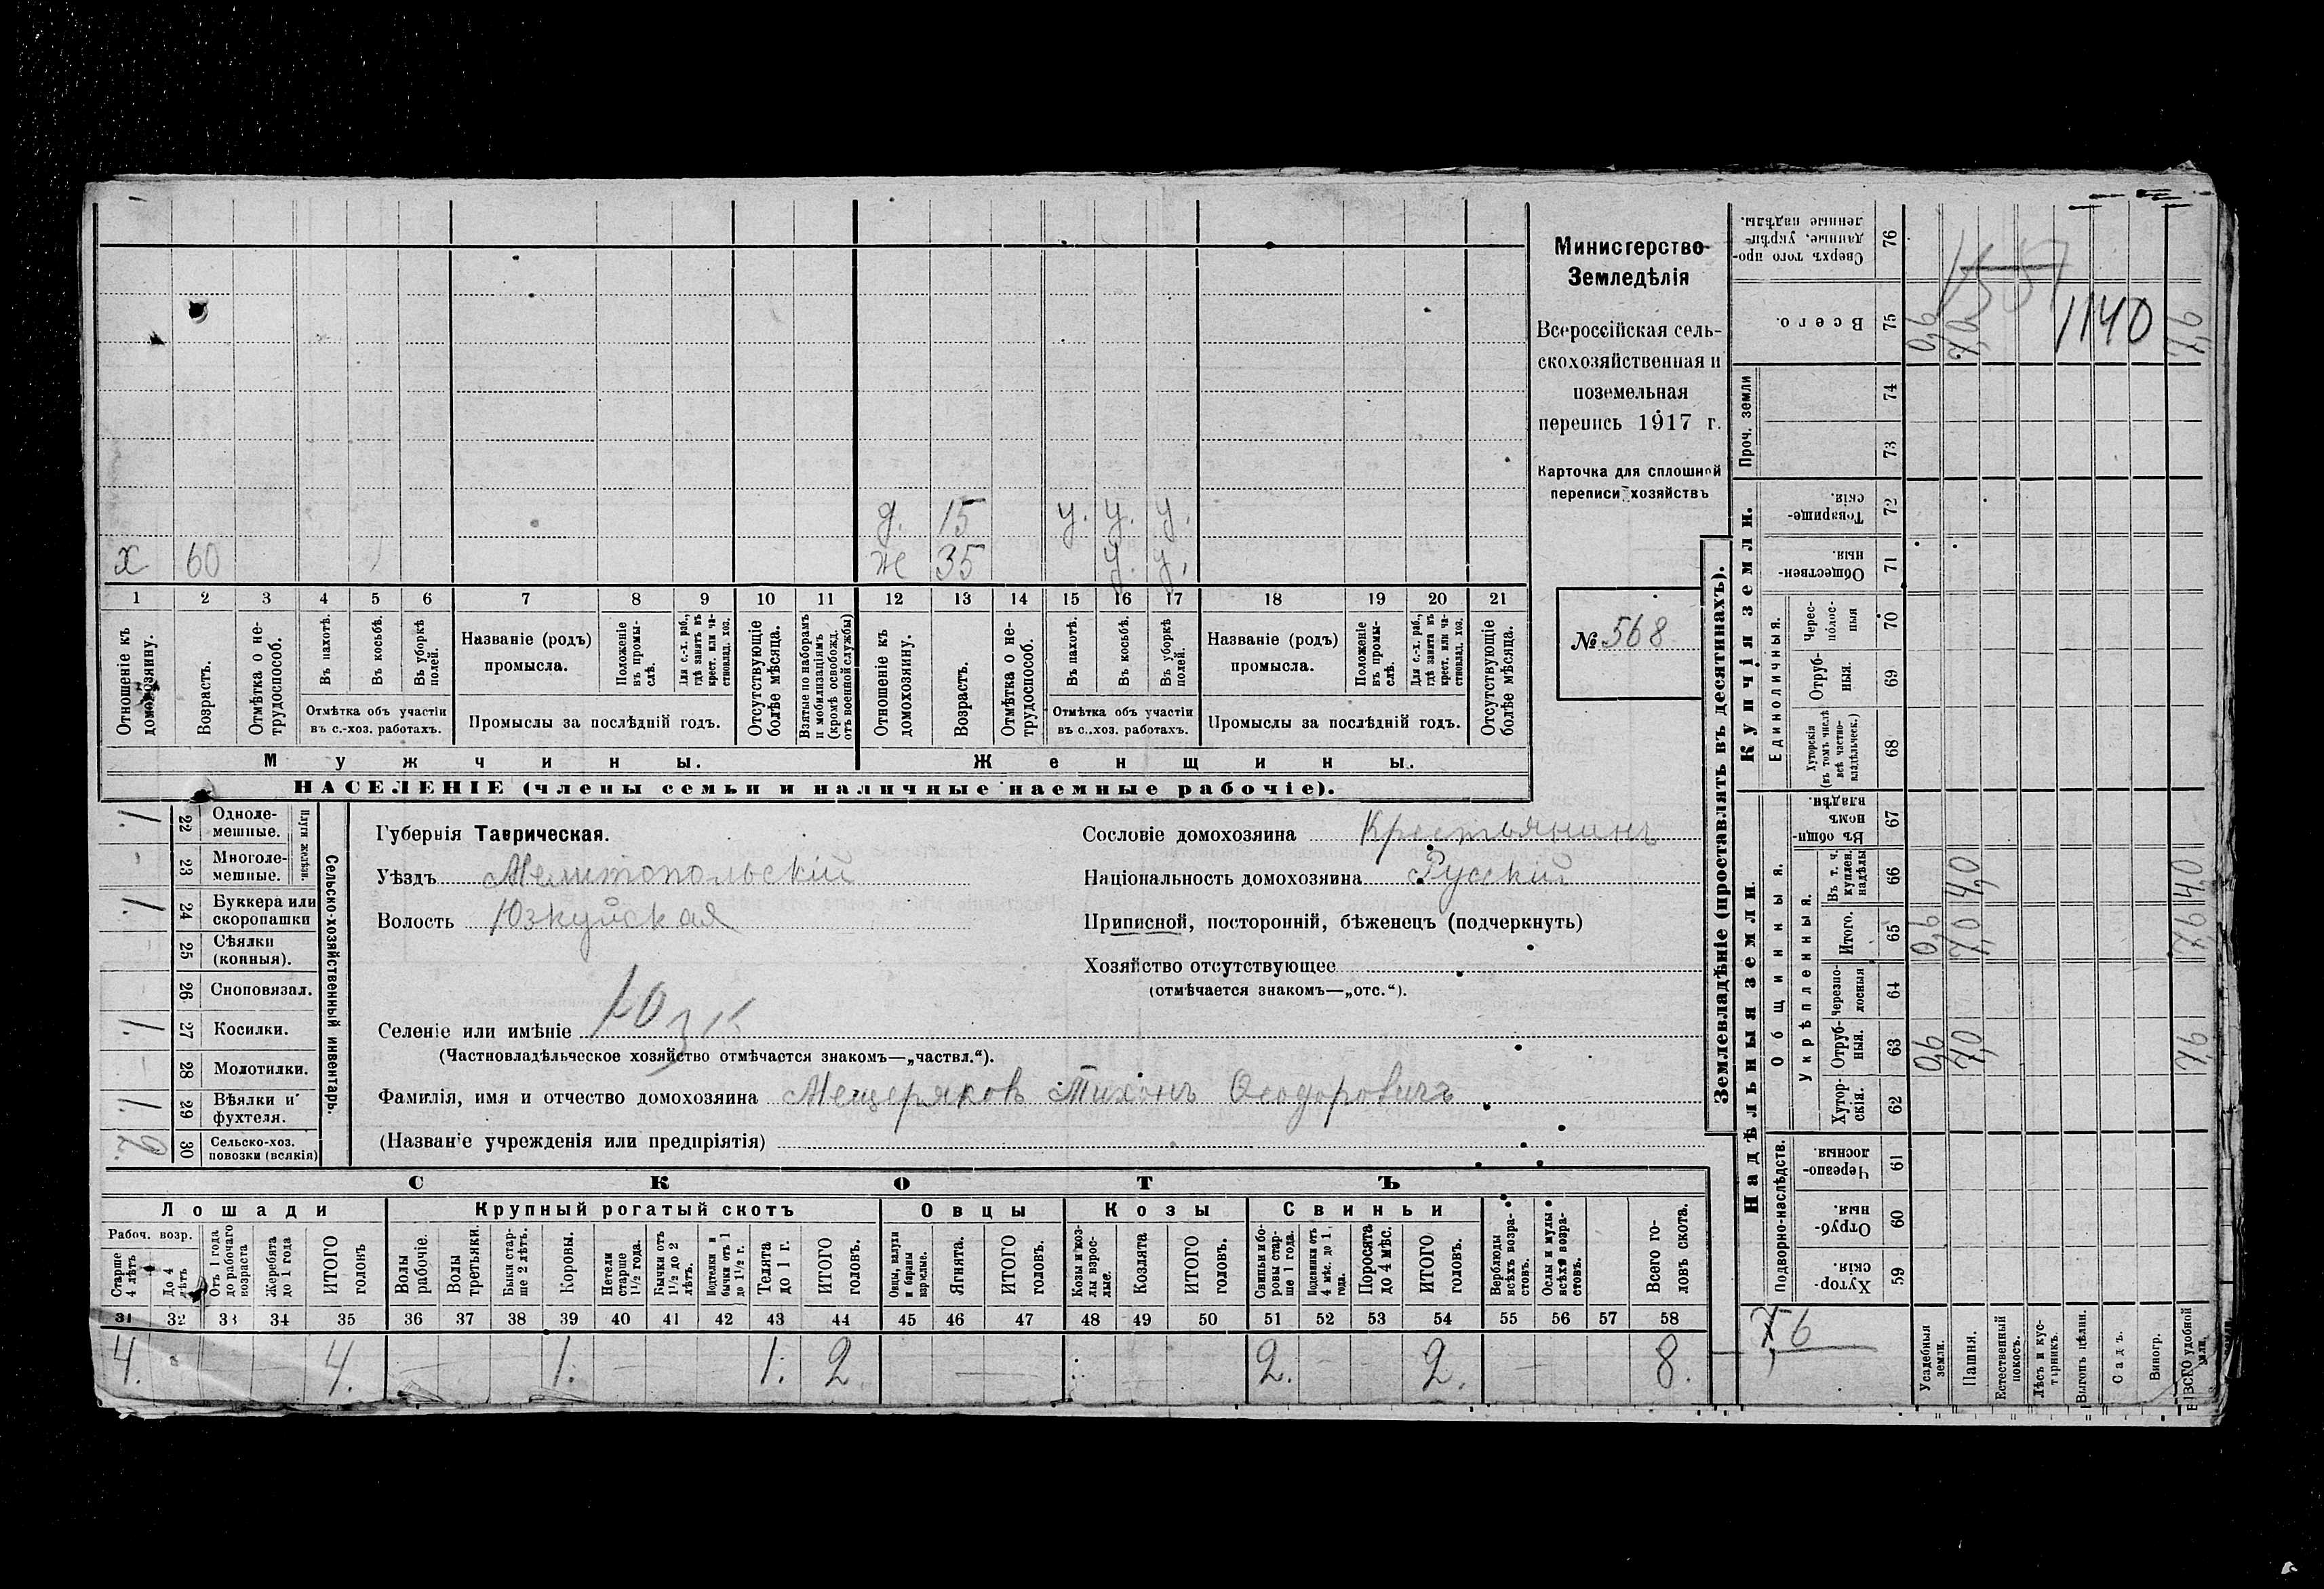 д. 15 у. у. у.
х 60 ж 35 у. у.
1 2 3 4 5 6 7 8 9 10 11 12 13 14 15 16 17 18 19 20 21
Отношеніе къ домохозяину.
Возрастъ.
Отмѣтка о нетрудоспособ.
Въ пахотѣ.
Въ косьбѣ.
Въ уборкѣ полей.
Отмѣтка объ участіи въ с.-хоз. работахъ.
Названіе (родъ) промысла.
Положеніе въ промыслѣ.
Для с.-х. раб., гдѣ занятъ въ крест. или частновлад. хоз.
Промыслы за послѣдній годъ.
Отсутствующіе болѣе мѣсяца.
Взятые по наборамъ и мобилизаціямъ (кромѣ освобожд. отъ военной службы)
Отношеніе къ домохозяину.
Возрастъ.
Отмѣтка о нетрудоспособ.
Въ пахотѣ.
Въ косьбѣ.
Въ уборкѣ полей.
Отмѣтка объ участіи въ с.-хоз. работахъ.
Названіе (родъ) промысла.
Положеніе въ промыслѣ.
Для с.-х. раб., гдѣ занятъ въ крест. или частновлад. хоз.
Промыслы за послѣдній годъ.
Отсутствующіе болѣе мѣсяца.
Мужчины. Женщины.
НАСЕЛЕНІЕ (члены семьи и наличные наемные рабочіе).
Министерство
Земледѣлія
Всероссійская сель-
скохозяйственная и
поземельная
перепись 1917 г.
Карточка для сплошной
переписи хозяйствъ
№ 568
1. 22 Однолемешные.
- 23 Многолемешные.
Плуги желѣзн.
1. 24 Буккера или скоропашки
- 25 Сѣялки (конныя).
- 26 Сноповязал.
1. 27 Косилки.
- 28 Молотилки.
1. 29 Вѣялки и фухтеля.
2. 30 Сельско-хоз. повозки (всякія)
Сельско-хозяйственный инвентарь.
Губернія Таврическая.
Уѣздъ Мелитопольскій
Волость Юзкуйская
Сословіе домохозяина Крестьянинъ
Національность домохозяина Русскій
Приписной, посторонній, бѣженецъ (подчеркнуть)
Хозяйство отсутствующее
(отмѣчается знакомъ—„отс.“).
Селеніе или имѣніе Юзк
(Частновладѣльческое хозяйство отмѣчается знакомъ—„частвл.“).
Фамилія, имя и отчество домохозяина Мещеряковъ Тихонъ Ѳеодоровичъ
(Названіе учрежденія или предпріятія)
СКОТЪ
Лошади Крупный рогатый скотъ Овцы Козы Свиньи
Рабоч. возр.
Старше 4 лѣтъ
До 4 лѣтъ
Отъ 1 года до рабочаго возраста
Жеребята до 1 года
ИТОГО головъ
Волы рабочіе.
Волы третьяки.
Быки старше 2 лѣтъ.
Коровы.
Нетели старше 1½ года.
Бычки отъ 1½ до 2 лѣтъ.
Подтелки и бычки отъ 1 до 1½ г.
Телята до 1 г.
ИТОГО головъ.
Овцы, валухи и бараны взрослые.
Ягнята.
ИТОГО головъ.
Козы и козлы взрослые.
Козлята
ИТОГО головъ.
Свиньи и боровы старше 1 года.
Подсвинки отъ 4 мѣс. до 1 года.
Поросята до 4 мѣс.
ИТОГО головъ.
Верблюды всѣхъ возрастовъ.
Ослы и мулы всѣхъ возрастовъ.
Всего головъ скота.
31 32 33 34 35 36 37 38 39 40 41 42 43 44 45 46 47 48 49 50 51 52 53 54 55 56 57 58
4. 4. 1. 1. 2 2. 2. 8.
Землевладѣніе (проставлять въ десятинахъ).
Надѣльныя земли. Купчія земли. Проч. земли
Подворно-наслѣдств.
Общинныя.
Укрѣпленныя.
Единоличныя.
Хуторскія. 59
Отрубныя. 60
Черезполосныя. 61
Хуторскія. 62
Отрубныя. 63 0,6 7,0 7,6
Черезполосныя 64
Итого. 65 0,6 7,0 7,6
Въ т. ч. куплен. надѣлы 66 4,0 4,0
Въ общинномъ владѣн. 67
Хуторскія (въ томъ числѣ всѣ частновладѣльческ.) 68
Отрубныя. 69
Чересполосныя 70
Общественныя. 71
Товарищескія. 72
73
74
Всего. 75 0,6 7,0 7,6
Сверхъ того проданные, укрѣпленные надѣлы. 76
1140
76
Усадебныя земли.
Пашня.
Естественный покосъ.
Лѣсъ и кустарникъ.
Выгонъ цѣлин.
Садъ.
Виногр.